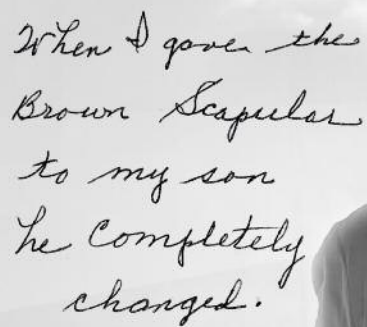 When I gave the
Brown Scapular
to my son
he completely
changed.